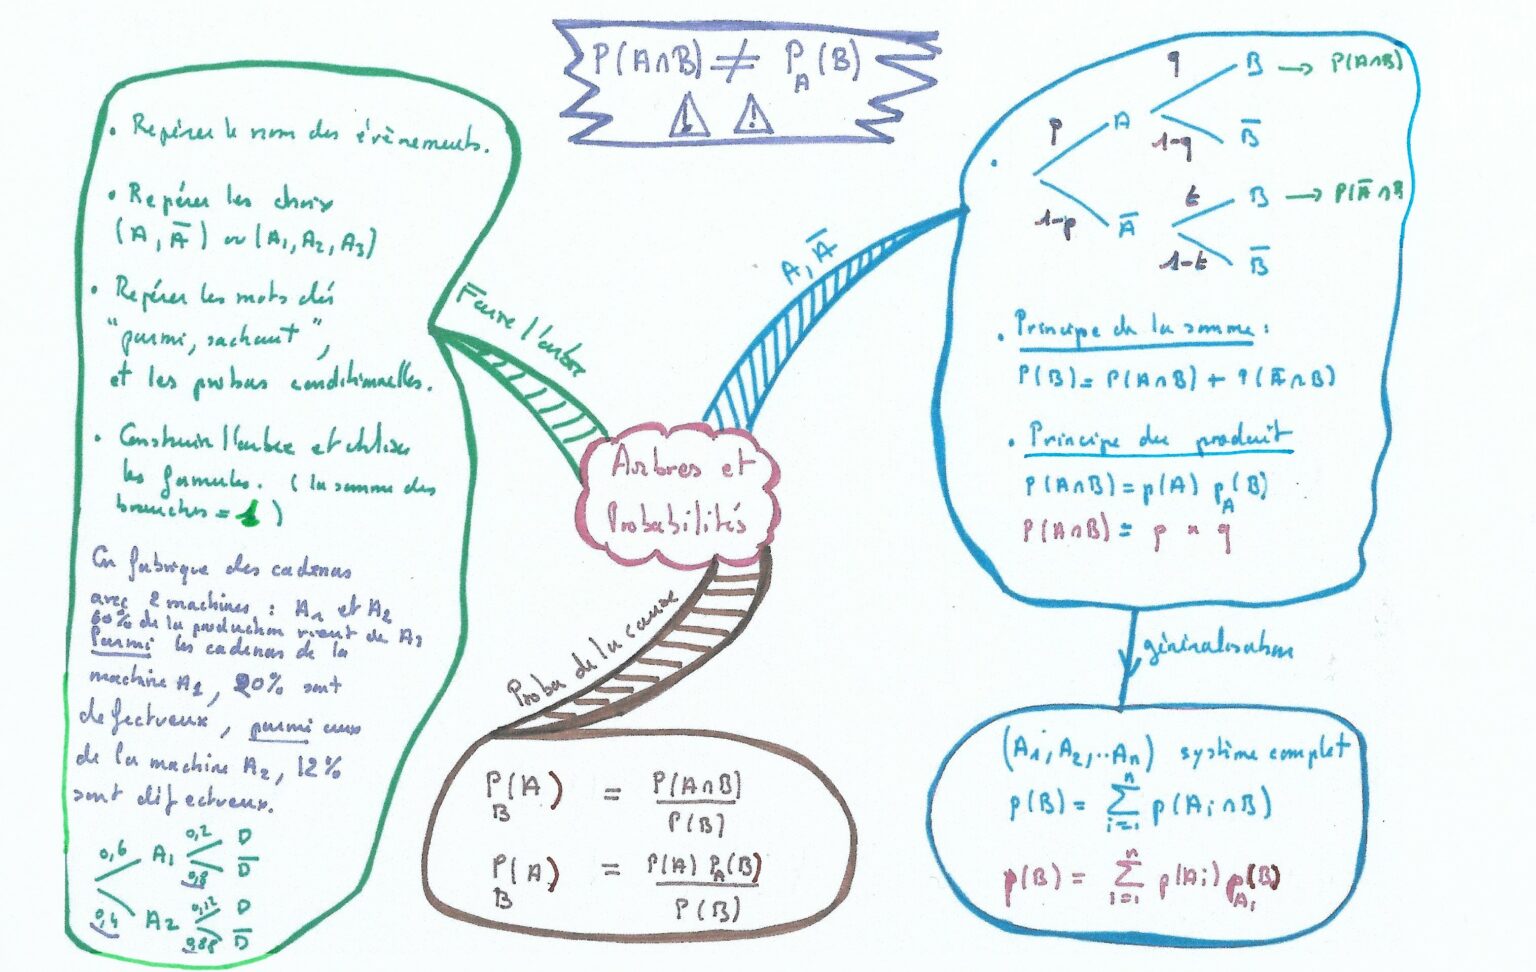 P(A∩B) ≠ P_A(B)
• Repérer le nom des évènements.
• Repérer les choix
(A, A̅) ou (A₁, A₂, A₃)
• Repérer les mots clés
"parmi, sachant",
et les probas conditionnelles.
• Construire l'arbre et utiliser
les formules. (la somme des
branches = 1)
On fabrique des cadenas
avec 2 machines : A₁ et A₂
60% de la production vient de A₁
Parmi les cadenas de la
machine A₁, 20% sont
défectueux, parmi ceux
de la machine A₂, 12%
sont défectueux.
0,6 A₁ 0,2 D
0,8 D̅
0,4 A₂ 0,12 D
0,88 D̅
Faire l'arbre
A, A̅
Arbres et
Probabilités
Proba de la cause
P_B(A) = P(A∩B) / P(B)
P_B(A) = P(A) P_A(B) / P(B)
q B → P(A∩B)
p A
1-q B̅
t B → P(A̅∩B
1-p A̅
1-t B̅
• Principe de la somme :
P(B) = P(A∩B) + P(A̅∩B)
• Principe du produit
P(A∩B) = p(A) p_A(B)
P(A∩B) = p × q
généralisation
(A₁, A₂, ..Aₙ) système complet
p(B) = ∑ⁿᵢ₌₁ p(Aᵢ∩B)
p(B) = ∑ⁿᵢ₌₁ p(Aᵢ) p_Aᵢ(B)